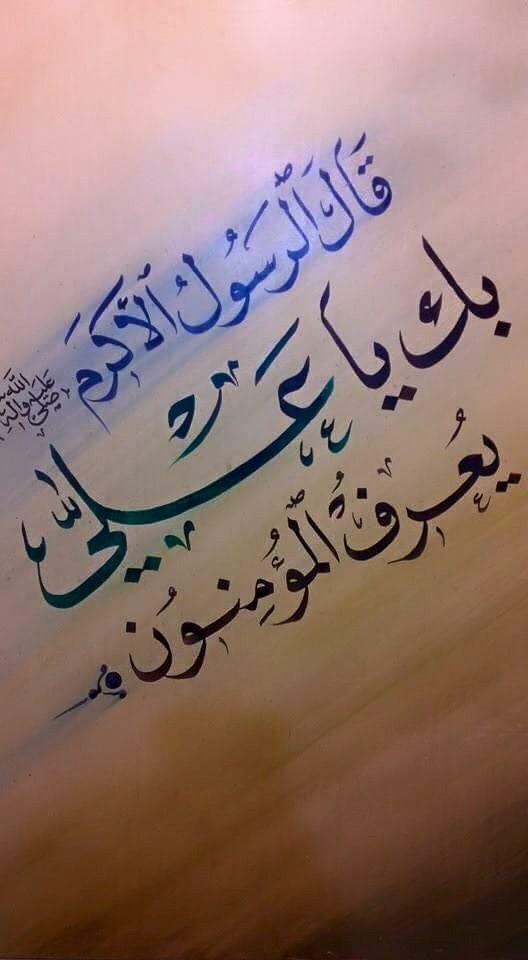 قَالَ ٱلرَّسُولُ ٱلأَكرَمَ
صَلَّى ٱللهُ عَلَيهِ وَآلِهِ
بك يا عَلِيّ
يُعرِفُ ٱلمُؤمِنُون